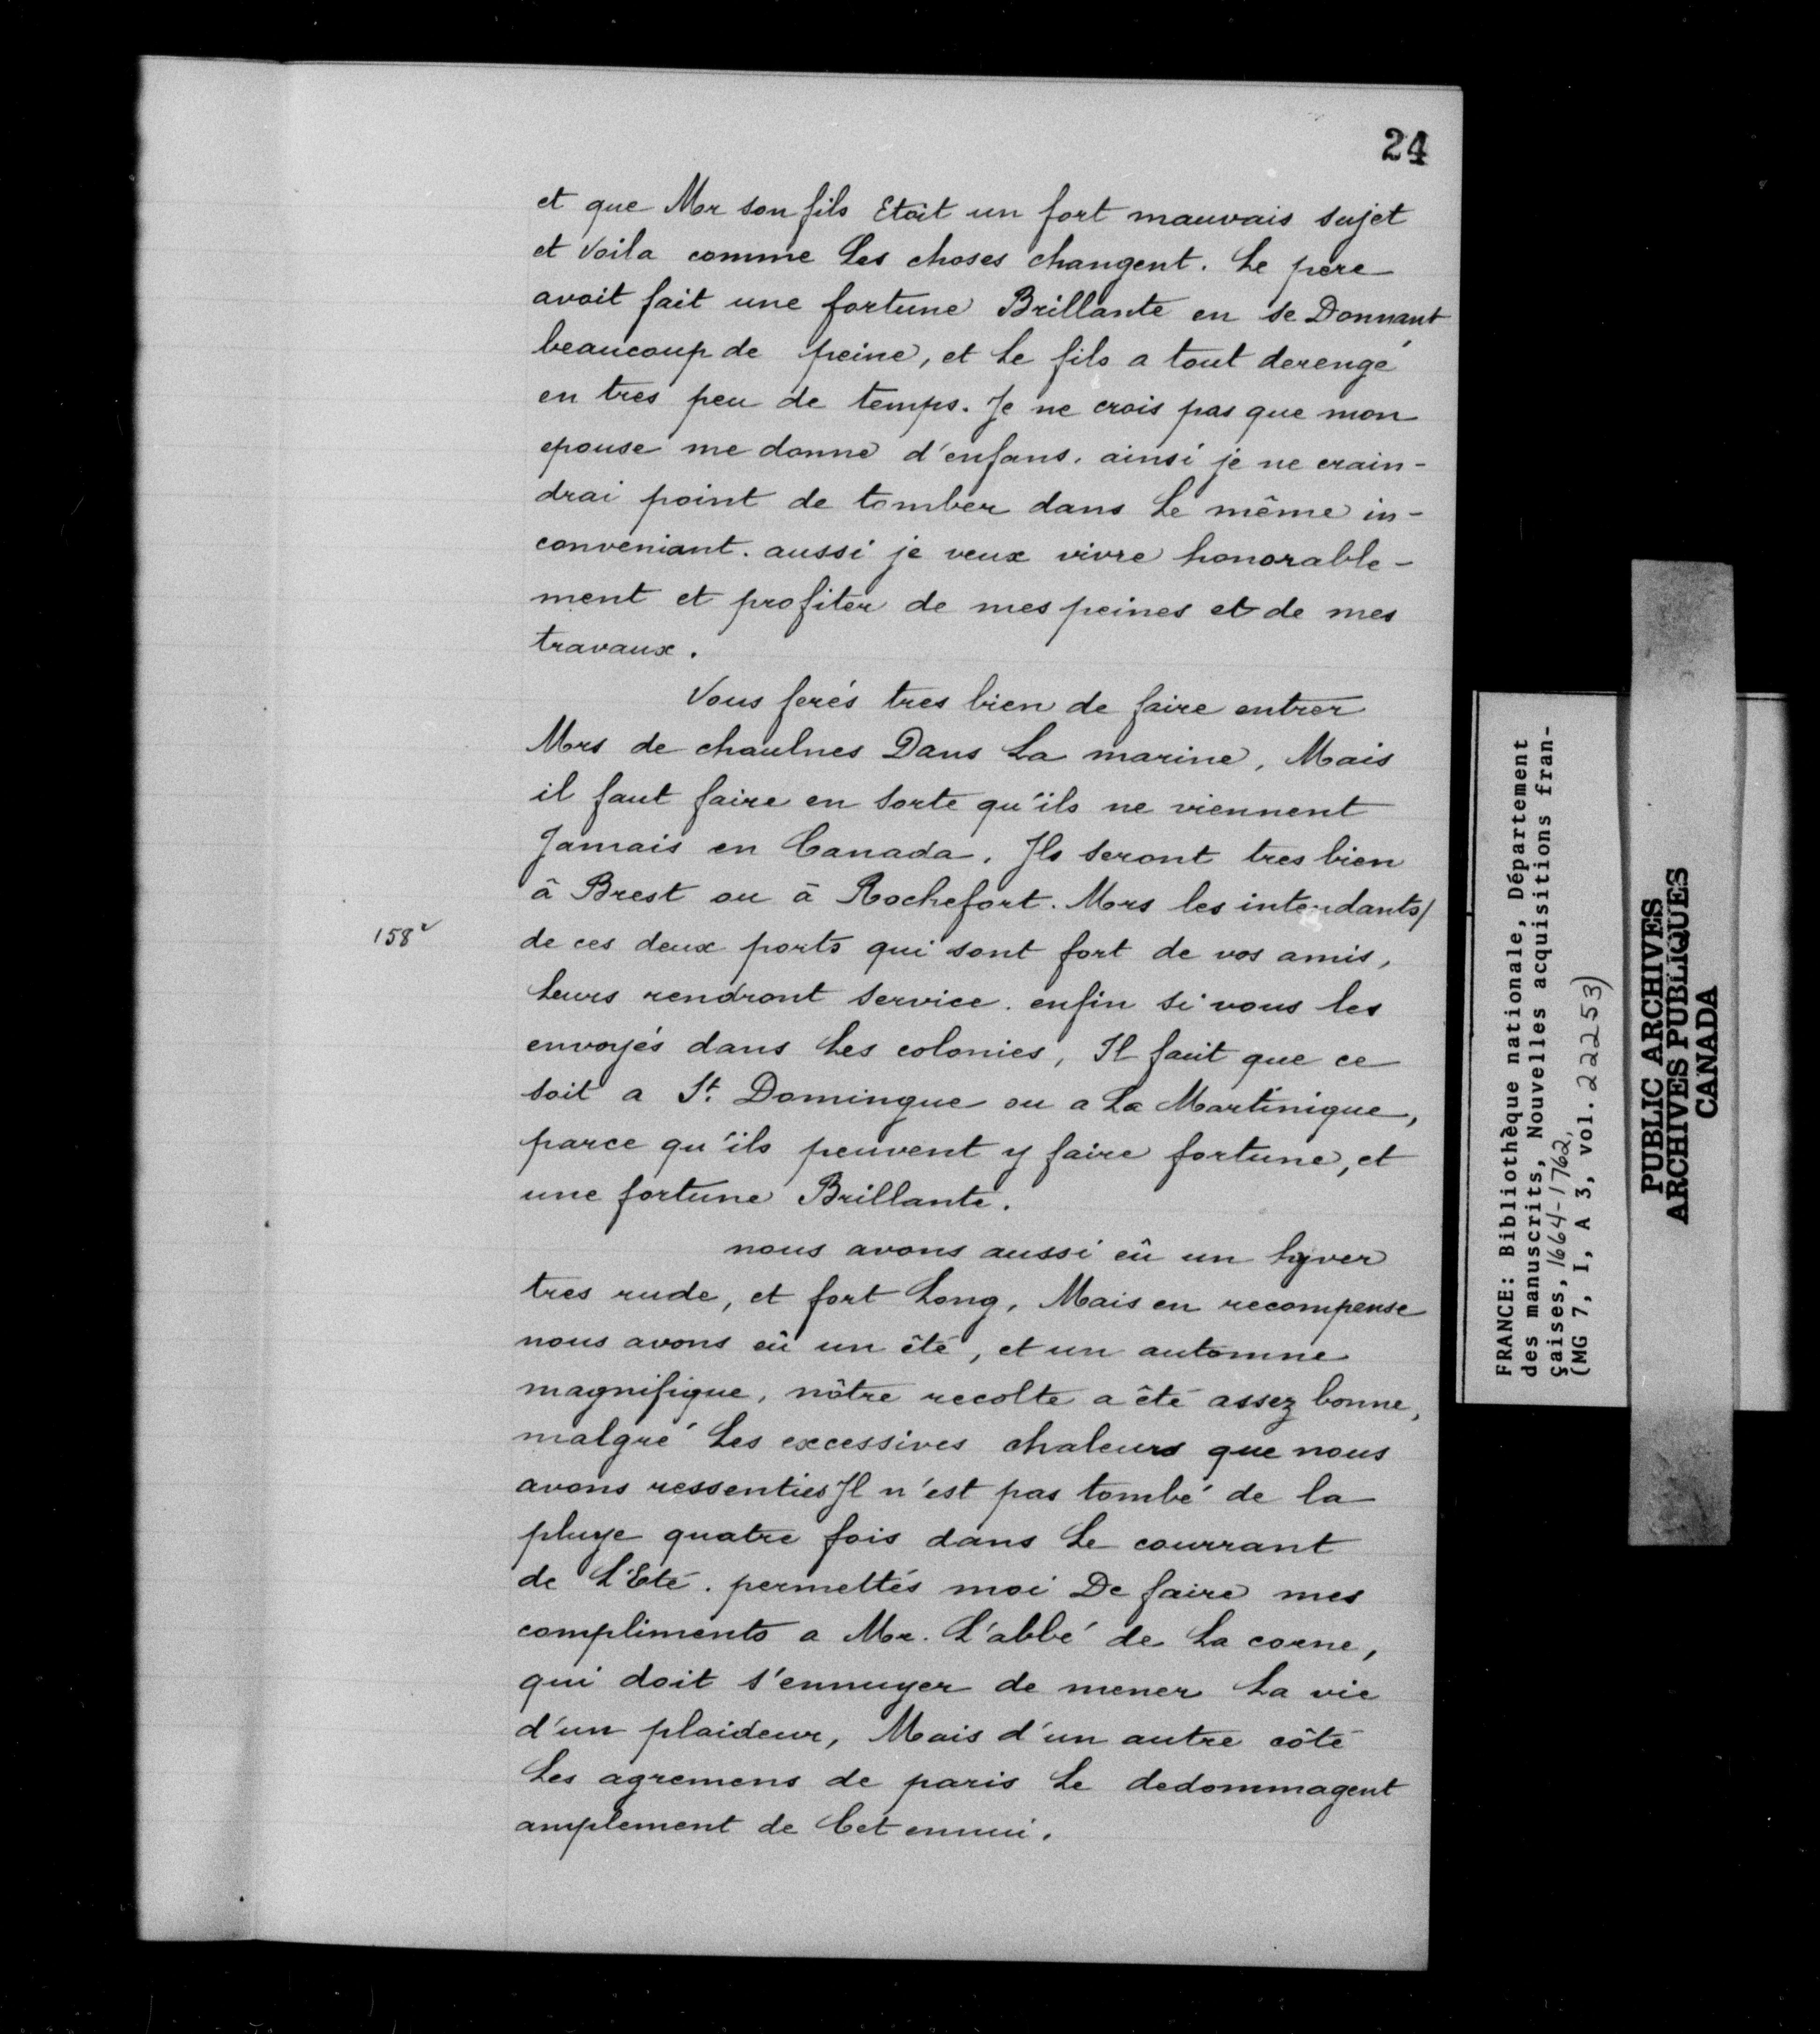 24
et que Mr son fils Etoit un fort mauvais sujet
et Voila comme Les choses changent. Le pere
avoit fait une fortune Brillante en se Donnant
beaucoup de peine, et Le fils a tout derengé
en tres peu de temps. Je ne crois pas que mon
epouse me donne d'enfans. ainsi je ne crain-
drai point de tomber dans Le même in-
conveniant. aussi je veux vivre honorable-
ment et profiter de mes peines et de mes
travaux.
Vous ferés tres bien de faire entrer
Mrs de chaulnes Dans La marine, Mais
il faut faire en sorte qu'ils ne viennent
Jamais en Canada. Ils seront tres bien
â Brest ou â Rochefort. Mrs les intendants/
158v
de ces deux ports qui sont fort de vos amis,
Leurs rendront service. enfin si vous les
envoyés dans Les colonies, Il faut que ce
soit a St. Domingue ou a La Martinique,
parce qu'ils peuvent y faire fortune, et
une fortune Brillante.
nous avons aussi eû un hyver
tres rude, et fort Long, Mais en recompense
nous avons eû un êté, et un automne
magnifique, nôtre recolte a êté assez bonne,
malgré Les excessives chaleurs que nous
avons ressenties Il n'est pas tombé de la
pluye quatre fois dans Le courrant
de L'Eté. permettés moi De faire mes
compliments a Mr. L'abbé de La corne,
qui doit s'ennuyer de mener La vie
d'un plaideur, Mais d'un autre côté
Les agremens de paris Le dedommagent
amplement de Cet ennui.
FRANCE: Bibliothèque nationale, Département
des manuscrits, Nouvelles acquisitions fran-
çaises, 1664-1762,
(MG 7, I, A 3, vol. 22253)
PUBLIC ARCHIVES
ARCHIVES PUBLIQUES
CANADA